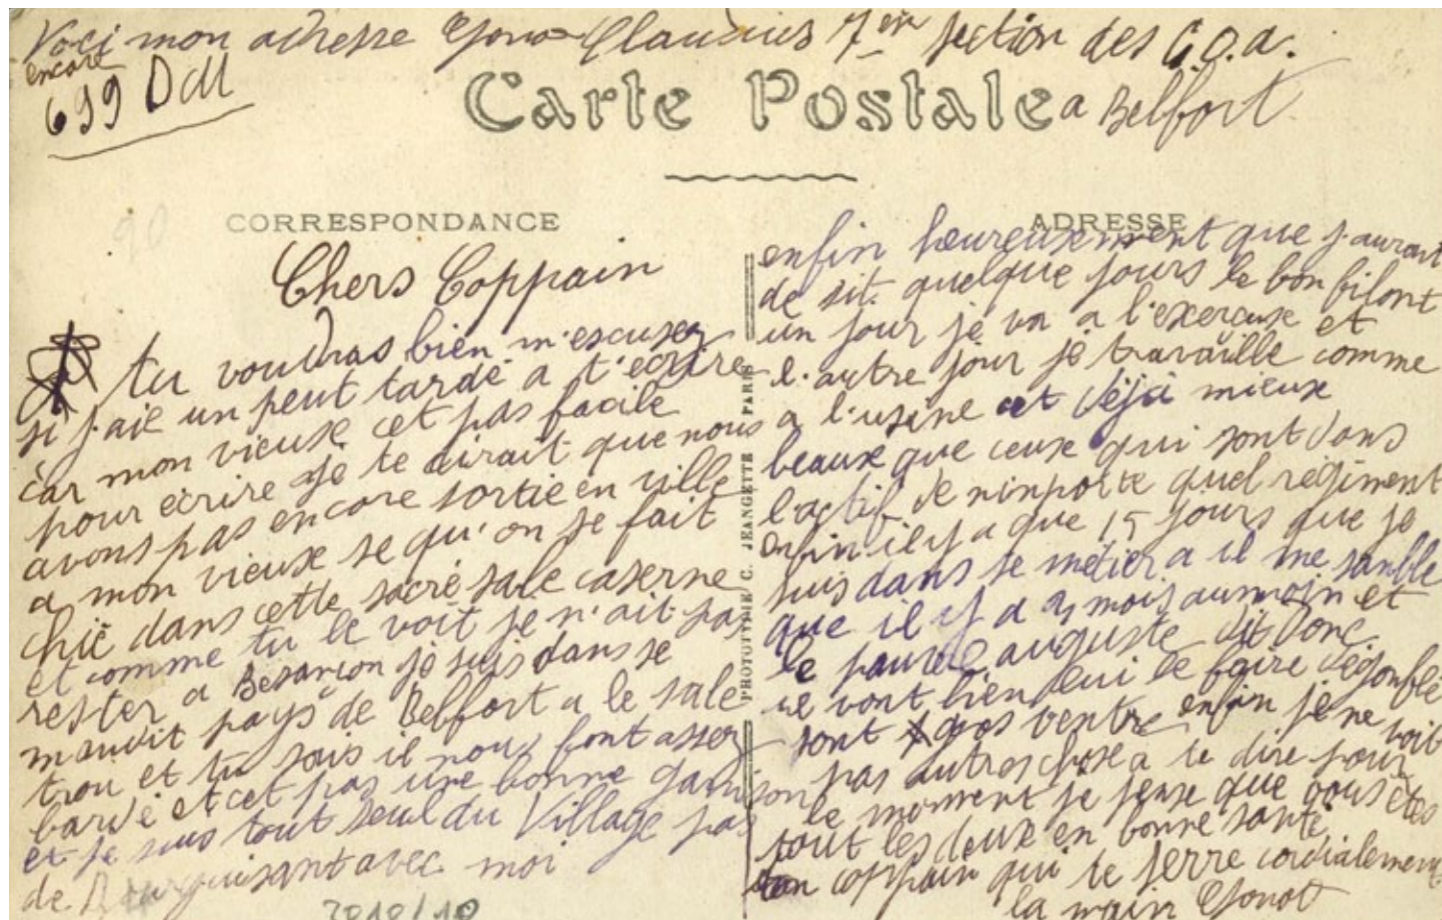 Voci mon adresse Gonot Claudius 7em section des C.O.a.
encore
699 DcM
Carte Postale
a Belfort
90
CORRESPONDANCE
Chers Coppain
tu voudras bien m'escuser
si j'aie un peut tardé a t'écrire
car mon vieuse cet pas facile
pour écrire je te dirait que nous
avons pas encore sortie en ville
a mon vieuse se qu'on se fait
chié dans cette sacré sale caserne
et comme tu le voit je n'ait pas
rester a Besançon je suis dans se
maudit pays de Belfort a le sale
trou et tu sais il nous font assez
bardé et cet pas une bonne garnison
et je suis tout seul du Village pas
de avec moi
2010/10
PHOTOTYPIE C. JEANGETTE PARIS
ADRESSE
enfin heureusement que j'aurait
de sit quelque jours le bon filont
un jour je va a l'exercuse et
l'autre jour je travaille comme
a l'usine cet déjà mieux
beaux que ceux qui sont dans
l'actif de ninporte quel régiment
enfin il y a que 15 jours que je
suis dans se métier a il me samble
que il y a mois aumoin et
le pauvre auguste dit donc
ue vont bien lui le faire dégonblé
sont gros ventre enfin je ne voit
pas autres chose a te dire pour
le moment je pense que vous êtes
tout les deux en bonne santé
ton coppain qui te serre cordialement
la main Gonot